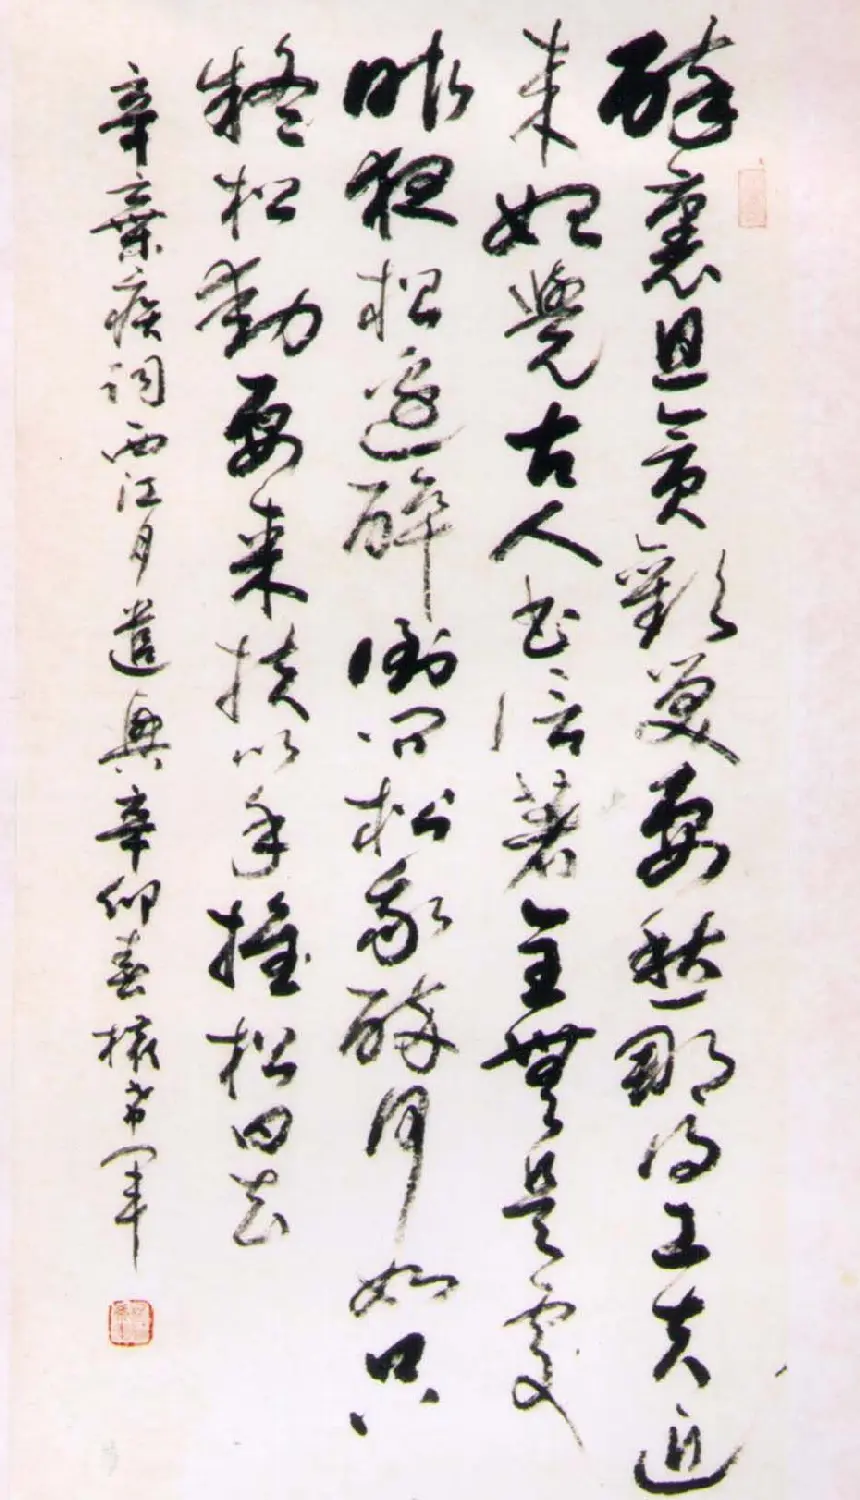 醉裏且貪歡笑要愁那得工夫近
来始覺古人书信著全無是處
昨夜松邊醉倒问松我醉何如只
疑松動要来扶以手推松曰去
辛棄疾詞西江月遣興辛卯春军